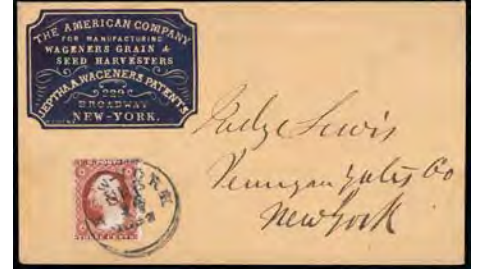 THE AMERICAN COMPANY
FOR MANUFACTURING
WAGENERS GRAIN &
SEED HARVESTERS
JEPTHA A. WAGENERS PATENTS
229
BROADWAY
NEW-YORK.
Judge Lewis
Penn yan Yates Co
New York
NEW-YORK